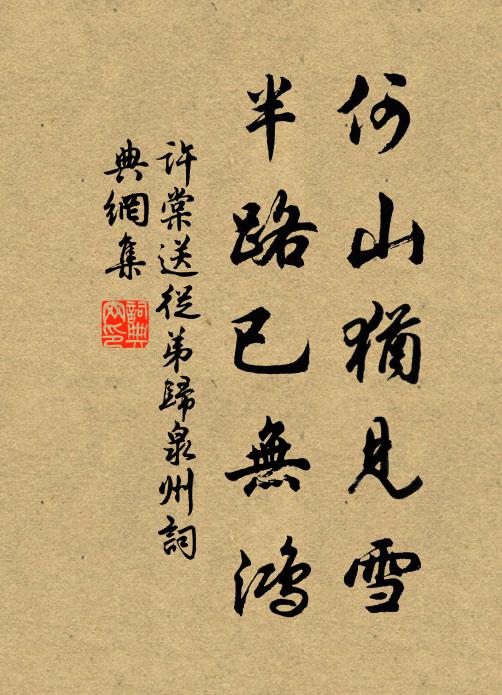 何山猶見雪
半路已無鴻
許棠送從弟歸泉州詞
典網集
詞典
网印